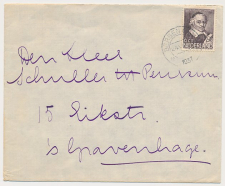 Den Heer
Schuller tot Peursum
15 Eikstr.
's Gravenhage.
NEDERLAND